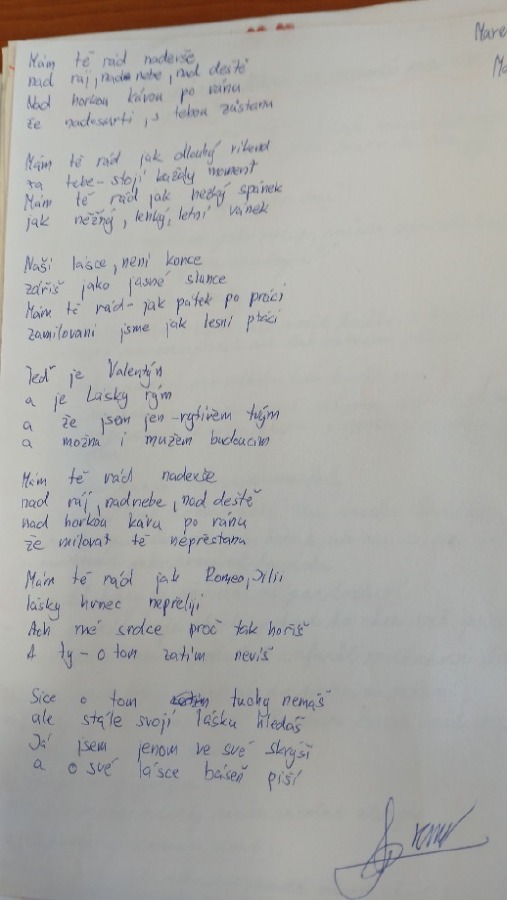 Mare
Ma
Mám tě rád nadevše
nad ráj, nad nebe, nad deště
Nad horkou kávou po ránu
že nadosmrti, s tebou zůstanu
Mám tě rád jak dlouhý víkend
za tebe - stojí každý moment
Mám tě rád jak hezký spánek
jak něžný, lehký, letní vánek
Naší lásce, není konce
záříš jako jasné slunce
Mám tě rád - jak pátek po práci
zamilovaní jsme jak lesní ptáci
Teď je Valentýn
a je Lásky rým
a že jsem jen - rytířem tvým
a možná i mužem budoucím
Mám tě rád nadevše
nad ráj, nad nebe, nad deště
nad horkou kávu po ránu
že milovat tě nepřestanu
Mám tě rád jak Romeo, Julii
lásky hrnec nepřelijí
Ach mé srdce proč tak hoříš
A ty - o tom zatím nevíš
Sice o tom tuchy nemáš
ale stále svojí lásku hledáš
Já jsem jenom ve své skrýši
a o své lásce báseň píší